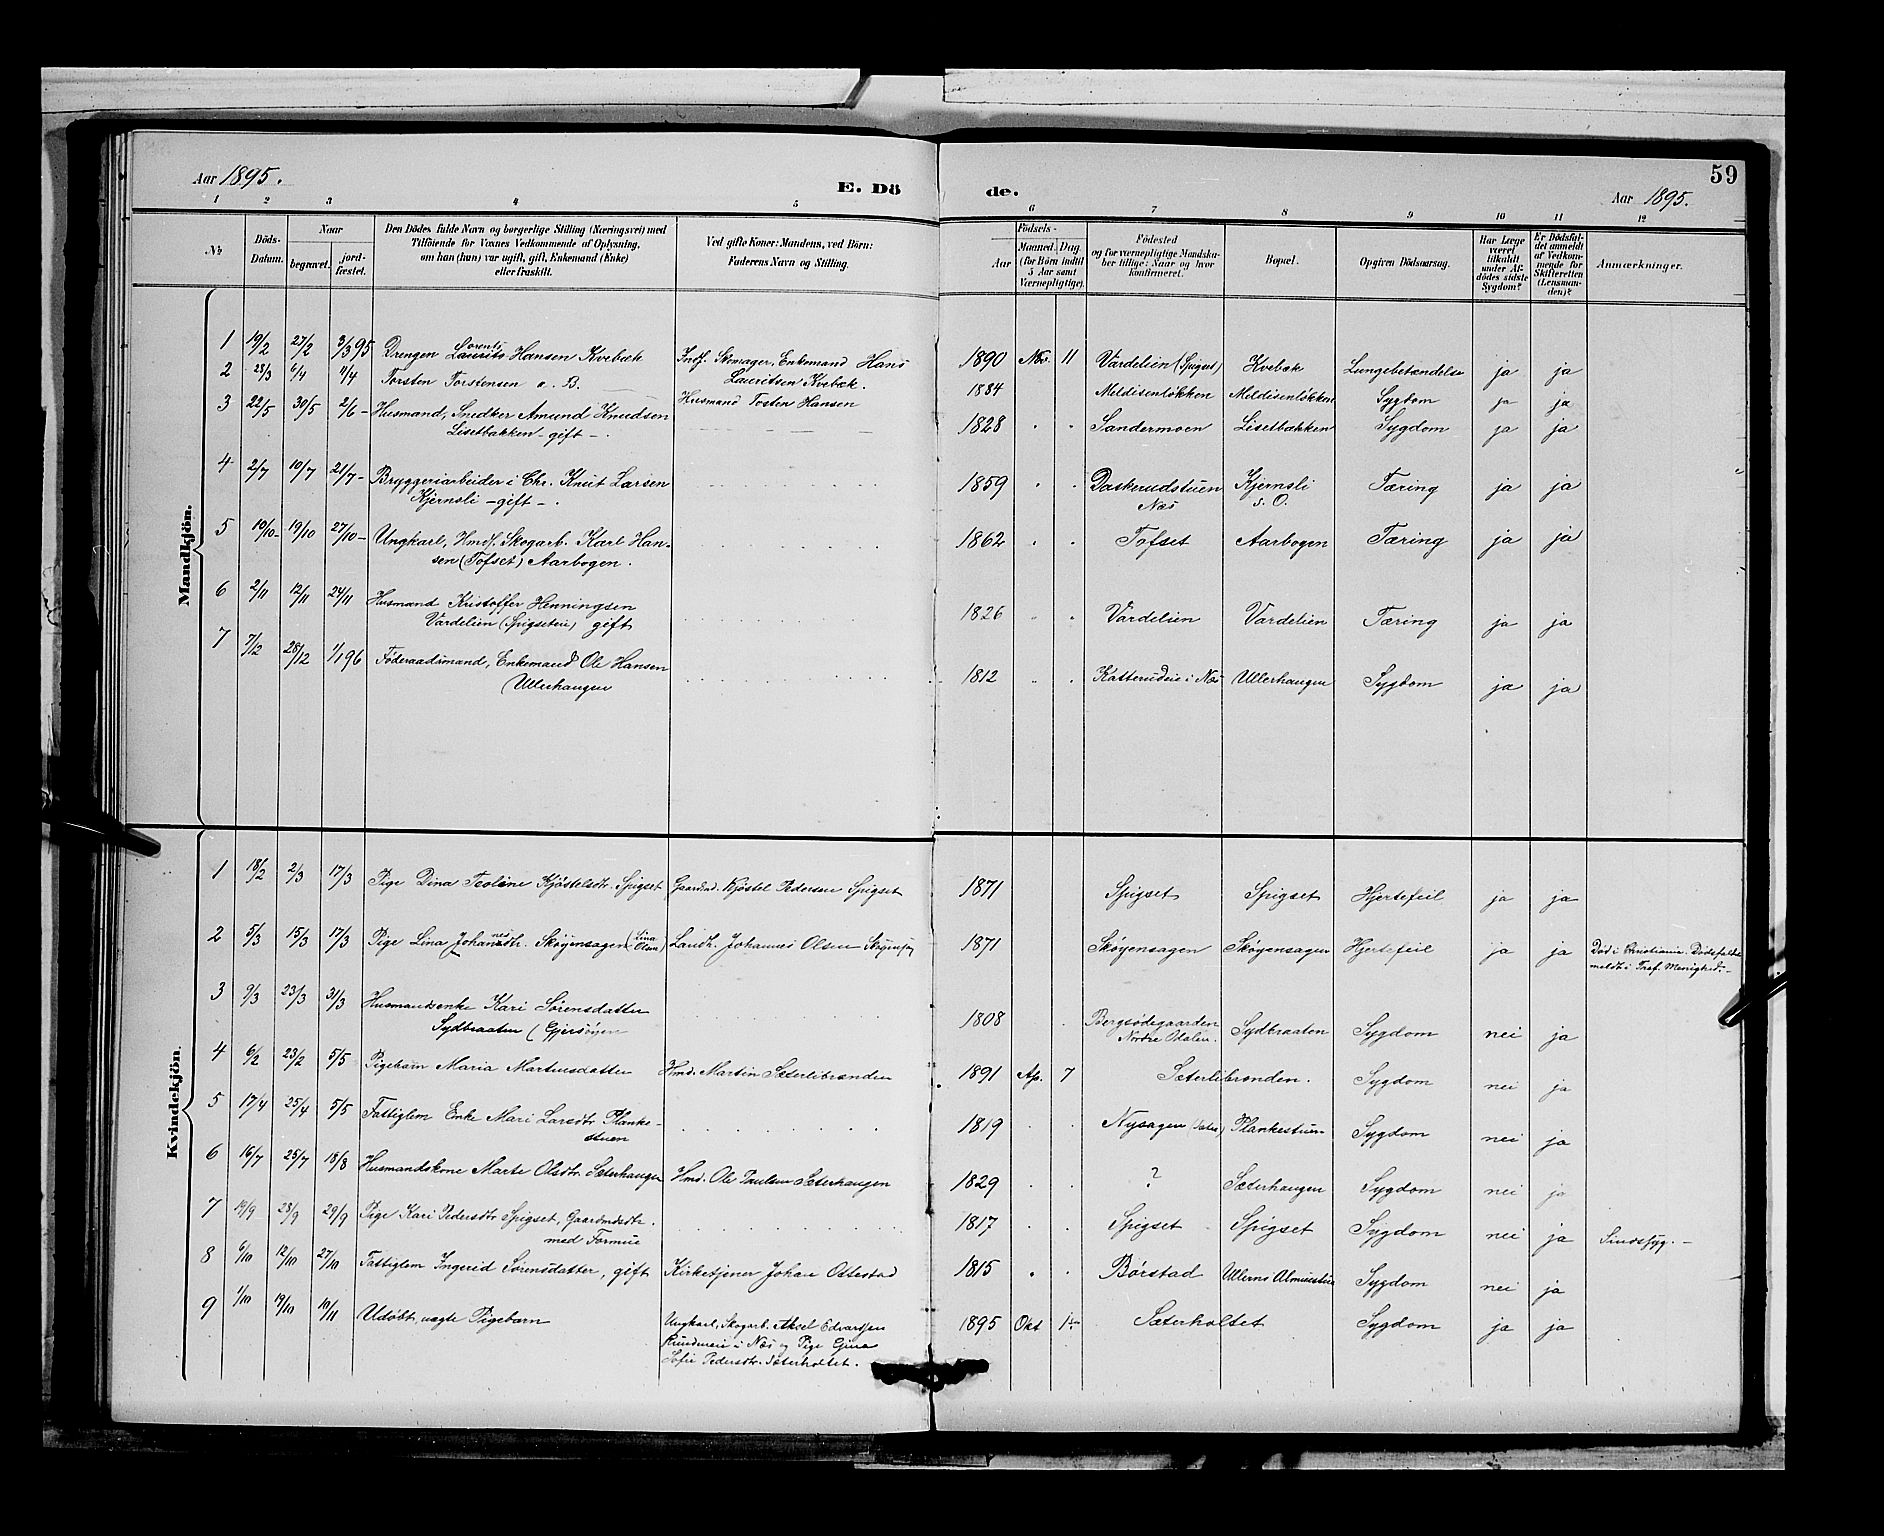 59
Aar 1895. E. Dö de. Aar 1895.
1 2 3 4 5 6 7 8 9 10 11 12
№ Döds-Datum. Naar begravet. jordfæstet. Den Dödes fulde Navn og borgerlige Stilling (Næringsvei) med Tilföiende for Voxnes Vedkommende af Oplysning, om han (hun) var ugift, gift, Enkemand (Enke) eller fraskilt. Ved gifte Koner: Mandens, ved Börn: Faderens Navn og Stilling. Födsels- Aar Maaned. Dag. (for Börn indtil 5 Aar samt Værnepligtige). Födested og for værnepligtige Mandskaber tillige: Naar og hvor konfirmeret. Bopæl. Opgiven Dödsaarsag. Har Læge været tilkaldt under Afdödes sidste Sygdom? Er Dödsfaldet anmeldt af Vedkommende for Skifteretten (Lensmanden)? Anmærkninger.
Mandkjön.
1 19/2 27/2 3/3 95 Drengen Laurits Hansen Kvebæk Indf. Skomager, Enkemand Hans Lauritsen Kvebæk. 1890 11 Vardelien (Spigset) Kvebæk Lungebetændelse ja ja
2 28/3 6/4 Torsten Torstensen Husmand Tosten Hansen 1884 Meldisenløkken Meldisenløkken Sygdom ja ja
3 22/5 30/5 2/6 - Husmand, Snedker Amund Knudsen
Lisetbakken - gift - . 1828 Sandermoen Lisetbakken Sygdom ja ja
4 2/7 10/7 21/7 - Bryggeriarbeider i Chr. Knut Larsen
Kjernsli - gift - . 1859 Daskerudstuen Næs Kjernsli s. O. Tæring ja ja
5 10/10 - 19/10 27/10 - Ungkarl, Hmdf. Skogarb. Karl Han-
sen (Tofset) Aarbogen. 1862 Tofset Aarbogen Tæring ja ja
6 2/11 12/11 24/11 Husmand Kristoffer Henningsen
Vardelien (Spigseteie) gift 1826 Vardelien Vardelien Tæring ja ja
7 7/12 28/12 1/1 96 Føderaadsmand, Enkemand Ole Hansen
Ullerhaugen 1812 Katterudeie i Næs Ullerhaugen Sygdom ja ja
Kvindekjön.
1 18/2 2/3 17/3 Pige Dina Teoline Kjøstelsdtr. Spigset Gaardmd. Kjøstel Pedersen Spigset 1871 Spigset Spigset Hjertefeil ja ja
2 5/3 15/3 17/3 Pige Lina Johannesdtr. Skøyensagen (Lina Olsen) Landh. Johannes Olsen 1871 Skøyensagen Skøyensagen Hjertefeil ja ja Død i Christiania. Dødsfaldet
meldt i Menighed. -
3 9/3 23/3 31/3 Husmandsenke Kari Sørensdatter
Sydbraaten (Gjersøyen 1808 Bergsødegaarden Nordre Odalen. Sydbraaten Sygdom nei ja
4 6/2 23/2 5/5 Pigebarn Maria Martinsdatter Hmd. Martin Sæterlibraaden 1891 Ap. 7 Sæterlibraaden. Sygdom nei ja
5 17/4 25/4 5/5 Fattiglem Enke Mari Larsdtr Planke-
stuen 1819 Nysagen Plankestuen Sygdom nei ja
6 16/7 25/7 18/8 Husmandskone Marte Olsdtr. Sæterhaugen Hmd. Ole Paulsen Sæterhaugen 1829 ? Sæterhaugen Sygdom nei ja
7 19/9 28/9 29/9 Pige Kari Pedersdtr Spigset, Gaardmdsdtr.
med Formue 1817 Spigset Spigset Sygdom nei ja Sindssyg. -
8 6/10 12/10 27/10 Fattiglem Ingerid Sørensdatter, gift Kirketjener Johan Ottestad 1815 Børstad Ullerns Almuestue Sygdom nei ja
9 1/10 19/10 10/11 Udøbt, uægte Pigebarn Ungkarl, Skogarb. Aksel Edvardsen
i Næs og Pige Gina
Sofie Pedersdtr. Sæterholtet. 1895 Okt Sæterholtet Sygdom ja ja